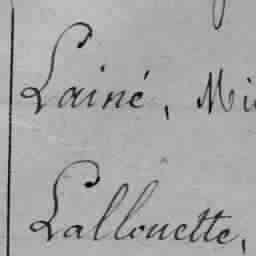 Lainé, Mi
Lallouette,